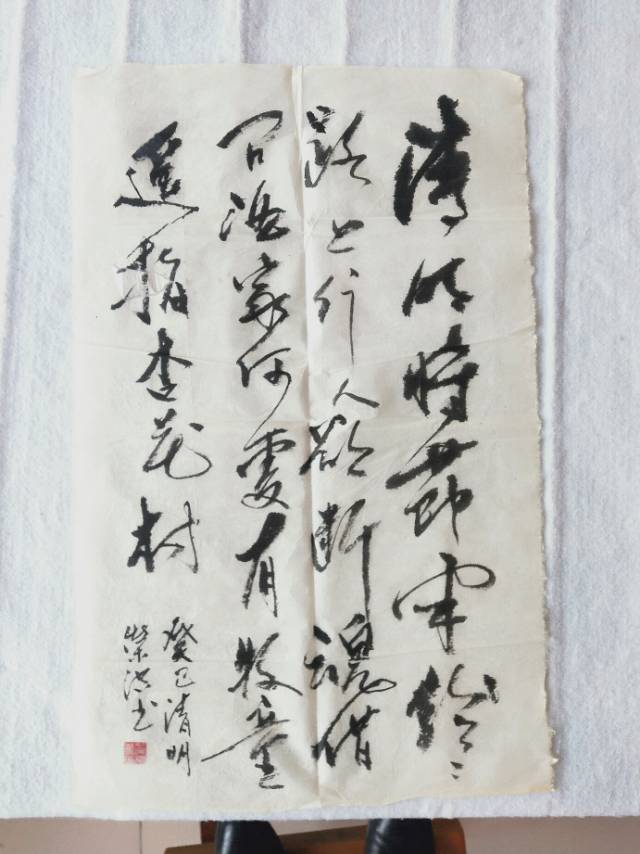 清明時節雨紛々
路上行人欲断魂借
问酒家何處有牧童
遥指杏花村
癸巳清明
书